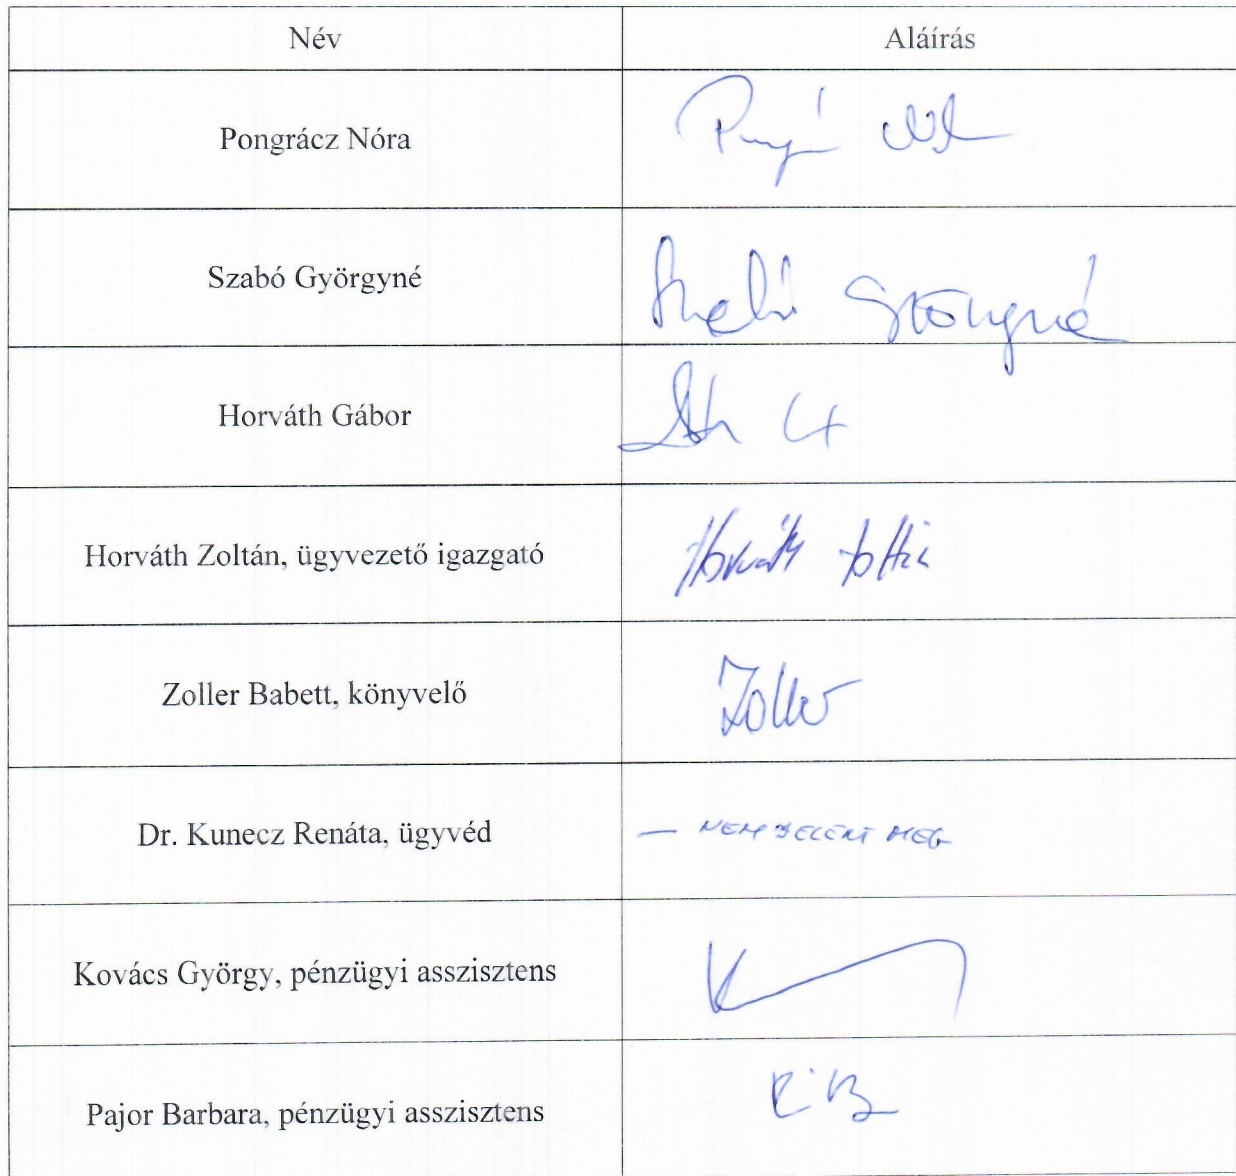 Név Aláírás
Pongrácz Nóra
Szabó Györgyné Szabó Györgyné
Horváth Gábor
Horváth Zoltán, ügyvezető igazgató Horváth Zoltán
Zoller Babett, könyvelő Zoller
Dr. Kunecz Renáta, ügyvéd — NEM JELENT MEG
Kovács György, pénzügyi asszisztens
Pajor Barbara, pénzügyi asszisztens